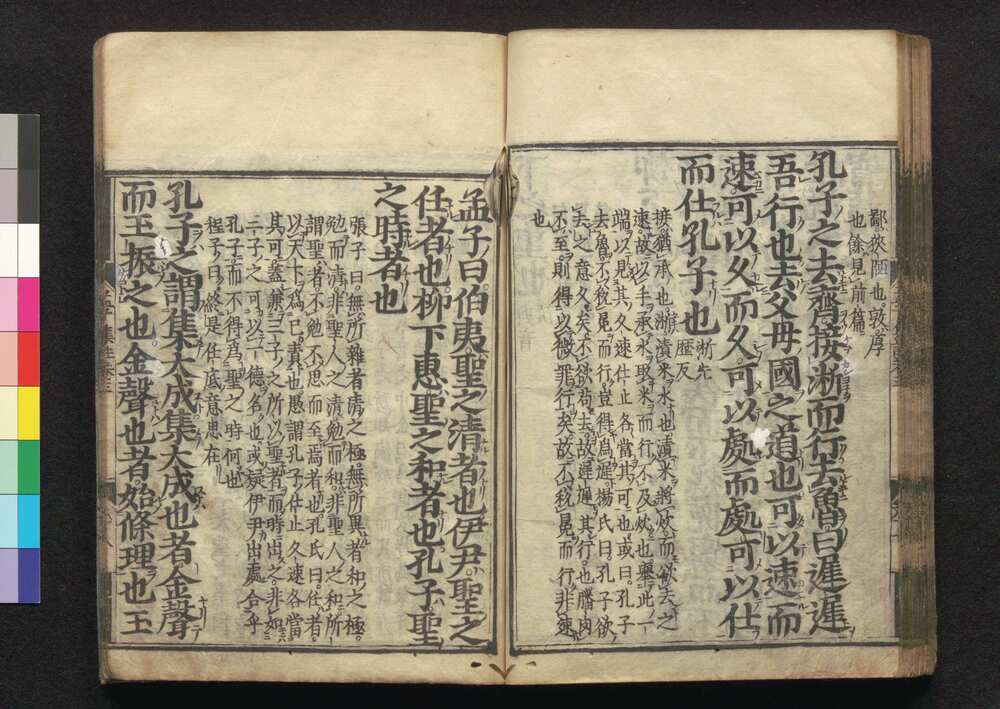 鄙狹陋也敦厚
也餘見前篇
孔子之去齊接淅而行去魯曰遲遲
吾行也去父母國之道也可以速而
速可以久而久可以處而處可以仕
而仕孔子也
淅先
歷反
接猶承也淅漬米水也漬米將炊而欲去之
速故以手承水取米而行不及炊也舉此一
端以見其久速仕止各當其可也或曰孔子
去魯不稅冕而行豈得爲遲楊氏曰孔子欲
去之意久矣不欲苟去故遲遲其行也膰肉
不至則得以微罪行矣故不稅冕而行非速
也
孟子曰伯夷聖之清者也伊尹聖之
任者也柳下惠聖之和者也孔子聖
之時者也
張子曰無所雜者清之極無所異者和之極
勉而清非聖人之清勉而和非聖人之和所
謂聖者不勉不思而至焉者也孔氏曰任者
以天下爲己責也愚謂孔子仕止久速各當
其可蓋兼三子之所以聖者而時出之非如
三子之可以一德名也或疑伊尹出處合乎
孔子而不得爲聖之時何也
程子曰終是任底意思在
孔子之謂集大成集大成也者金聲
而玉振之也金聲也者始條理也玉